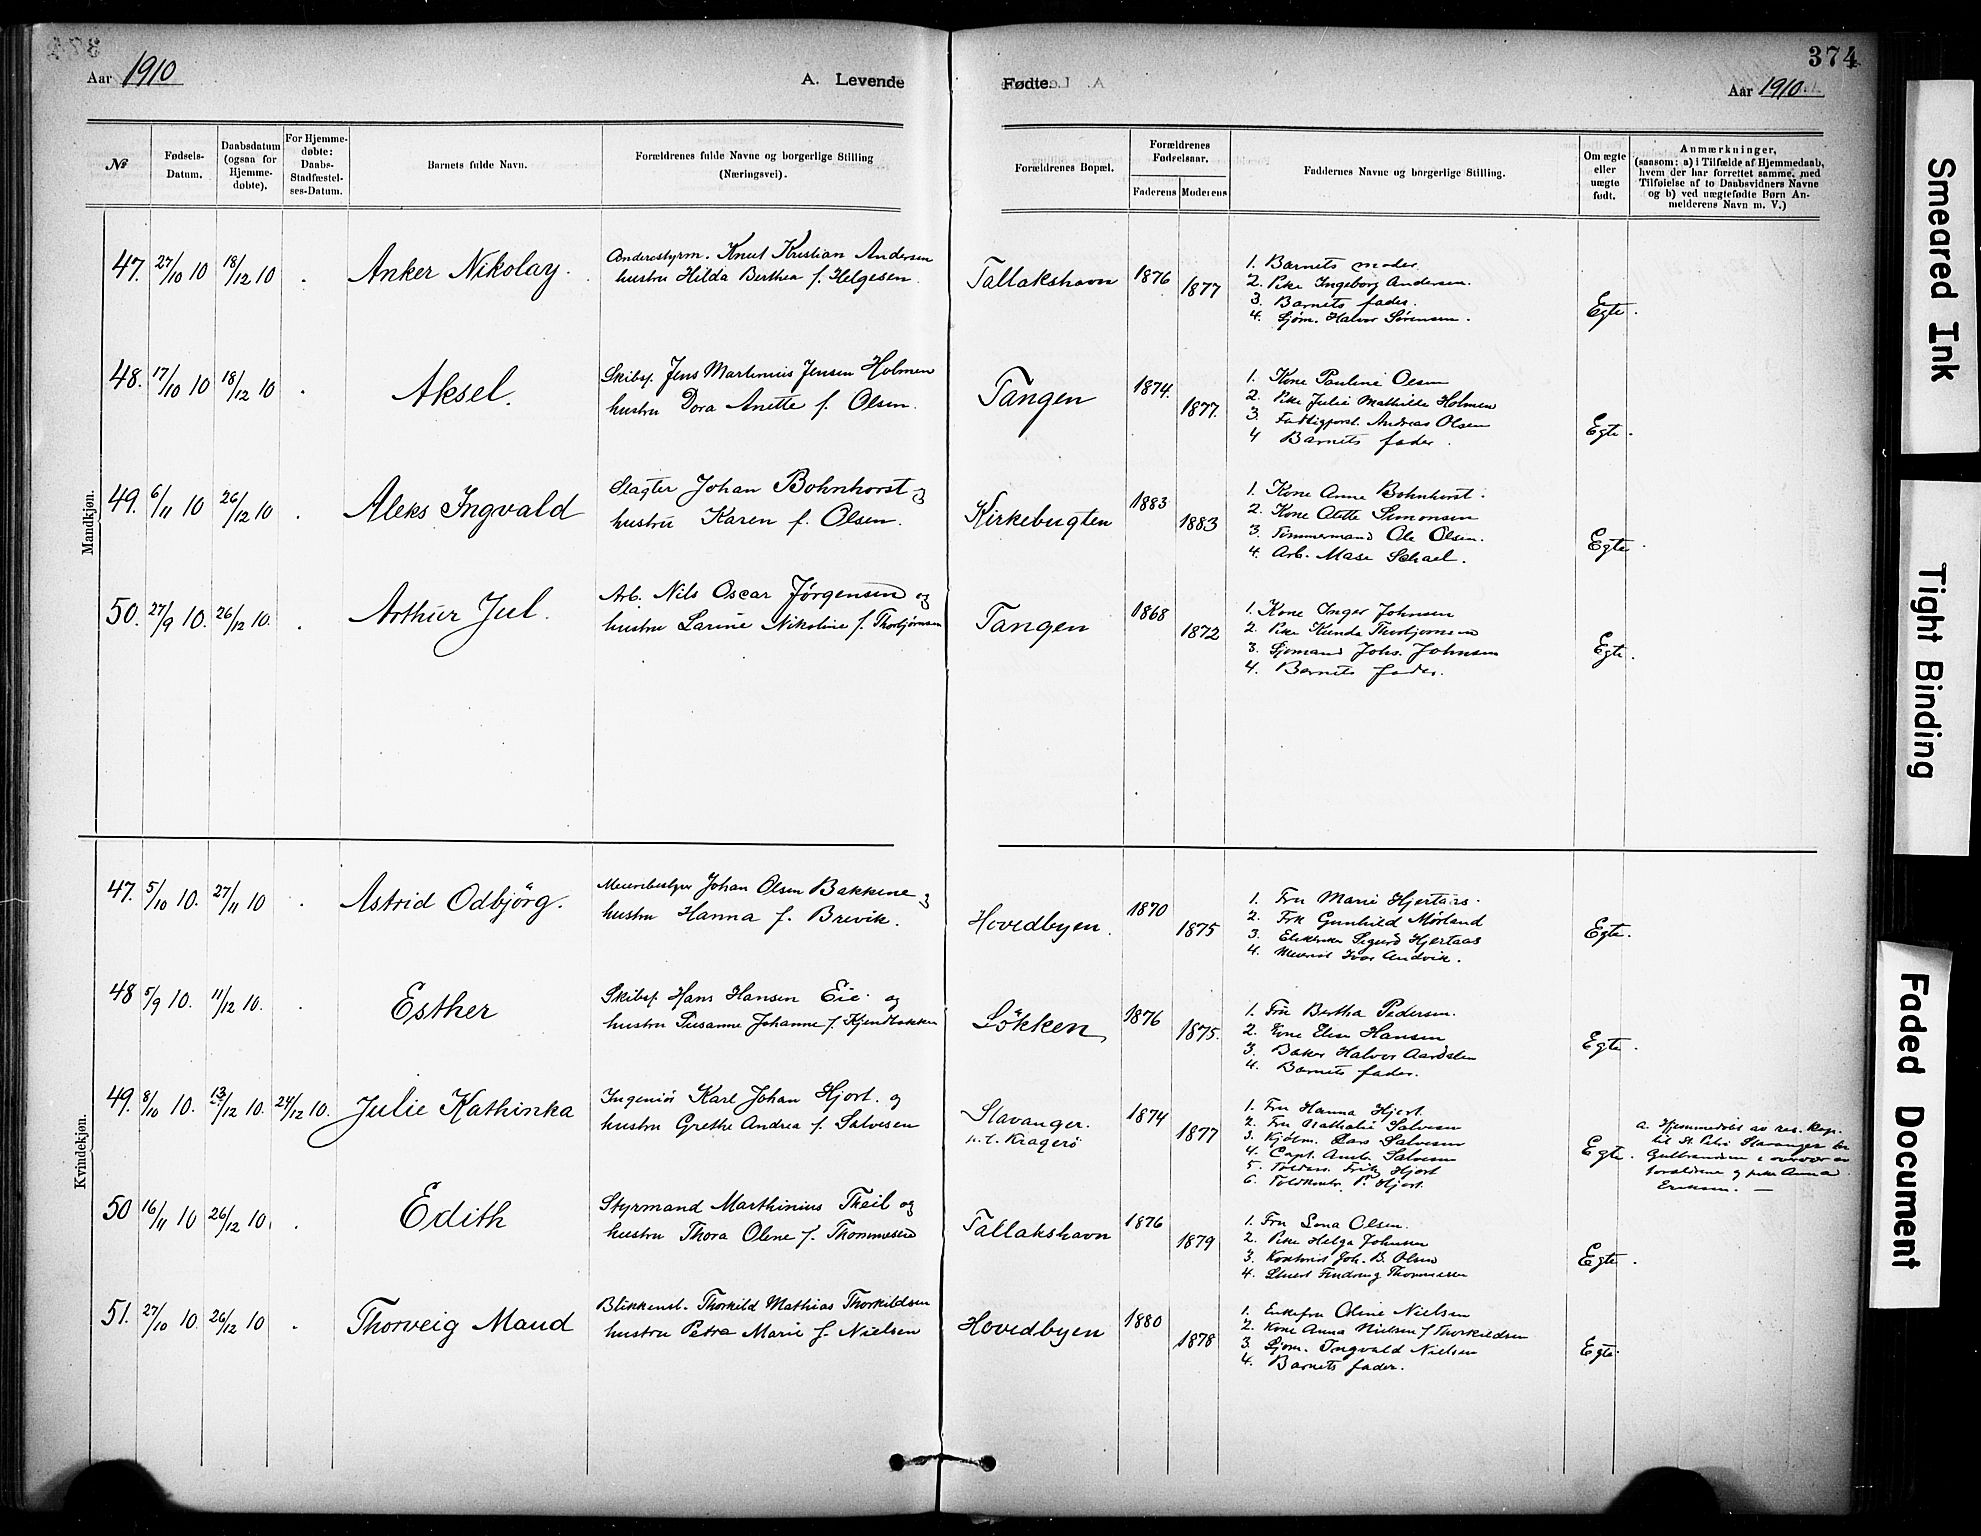 374
Aar 1910
A. Levende Fødte.
Aar 1910
№
Fødsels-Datum.
Daabsdatum (ogsaa for Hjemme-døbte).
For Hjemme-døbte: Daabs-Stadfæstel-ses-Datum.
Barnets fulde Navn.
Forældrenes fulde Navne og borgerlige Stilling (Næringsvei).
Forældrenes Bopæl.
Forældrenes Fødselsaar.
Faderens
Moderens
Faddernes Navne og borgerlige Stilling.
Om ægte eller uægte født.
Anmærkninger,
(saasom: a) i Tilfælde af Hjemmedaab,
hvem der har forrettet samme, med
Tilføielse af to Daabsvidners Navne
og b) ved uægtefødte Børn An-
melderens Navn m. V.)
Mandkjøn.
47. 27/10 10 18/12 10 . Anker Nikolay.
Knut Kristian Andersen
hustru Hilda Berthea f. Helgesen.
Tallakshavn 1876 1877
1. Barnets moder.
2. Pike Ingeborg Andersen.
3. Barnets fader.
4. Sjøm. Halvor Sørensen.
Egte.
48. 17/10 10 18/12 10 . Aksel.
Skibsf. Jens Martinius Jensen Holmen
hustru Dora Anette f. Olsen.
Tangen 1874. 1877.
1. Kone Pauline Olsen
2. Pike Julie Mathilde Holmen
3. Fattigforst. Andreas Olsen
4 Barnets fader.
Egte.
49. 6/11 10 26/12 10 . Aleks Ingvald
Slagter Johan Bohnhorst og
hustru Karen f. Olsen.
Kirkebugten 1883 1883
1. Kone Anna Bohnhorst.
2. Kone Simonsen
3. Tømmermand Ole Olsen.
4. Arb.
Egte.
50. 27/9 10. 26/12 10. . Arthur Jul.
Arb. Nils Oscar Jørgensen og
hustru Larine Nikoline f. Thorbjørnsen
Tangen 1868 1872
1. Kone Inger Johnsen
2. Pike Kunda Thorbjørnsen
3. Sjømand Johs. Johnsen
4. Barnets fader.
Egte.
Kvindekjøn.
47. 5/10 10. 27/11 10 . Astrid Odbjörg.
Meieribestyrer Johan Olsen Bakkene og
hustru Hanna f. Brevik.
Hovedbyen. 1870 1875
1. Fru Marie Hjertaas.
2. Frk Gunhild Mørland
3. Sigurd Hjertaas
4. Ivar Andvik.
Egte.
48 5/9 10. 11/12 10. . Esther
Skibsf. Hans Hansen Eie. og
hustru Susanne Johanne f. Kjendbakken
Lökken 1876 1875.
1. Fru Bertha Pedersen.
2. Elise Hansen
3. Baker Halvor Aardalen
4. Barnets fader.
Egte.
49. 8/10 10. 13/12 10. 24/12 10. Julie Kathinka
Ingeniör Karl Johan Hjort. og
hustru Grethe Andrea f. Salvesen
Stavanger.
p.t. Kragerö
1874 1877
1. Fru Hanna Hjort.
2. Fru Nathalie Salvesen
3. Kjøbm. Lars Salvesen
4. Capt. Salvesen
5. Hjort
6. Hjort.
Egte.
a. Hjemmedøbt av res. Kap.
til St. Petri Stavanger
Gulbrandsen i overvær av
forældrene og pike Anna
Eriksen. —
50 16/11 10 26/12 10. . Edith
Styrmand Marthinius Theil og
hustru Thora Oline f. Thommesen
Tallakshavn 1876 1879
1. Fru Lona Olsen.
2. Pike Helga Johnsen
3. Kontorist Joh. B. Olsen
4. Thommesen
Egte.
51. 27/10 10. 26/12 10 . Thorveig Maud
Blikkensl. Thorkild Mathias Thorkildsen
hustru Petra Marie f. Nielsen
Hovedbyen 1880 1878
1. Enkefru Oline Nielsen
2. Kone Anna Nielsen f. Thorkildsen
3. Sjøm. Ingvald Nielsen
4. Barnets fader.
Egte.
Smeared Ink
Tight Binding
Faded Document